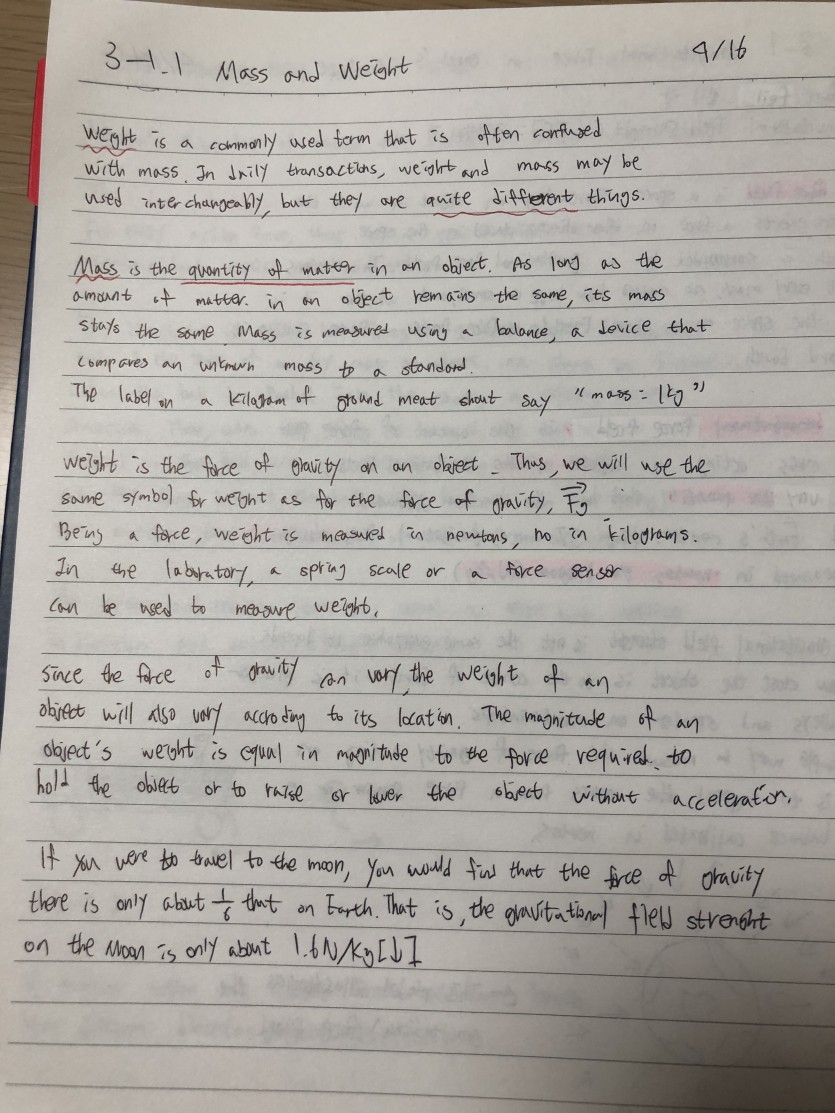 3-1.1 Mass and Weight 4/16
Weight is a commonly used term that is often confused
with mass. In daily transactions, weight and mass may be
used interchangeably, but they are quite different things.
Mass is the quantity of matter in an object. As long as the
amount of matter. in an object remains the same, its mass
stays the same. Mass is measured using a balance, a device that
compares an unknown mass to a standard.
The label on a kilogram of ground meat shout say "mass = 1kg"
Weight is the force of gravity on an object. Thus, we will use the
same symbol for weight as for the force of gravity, Fg
Being a force, weight is measured in newtons, no in kilograms.
In the laboratory, a spring scale or a force sensor
can be used to measure weight.
Since the force of gravity can vary, the weight of an
object will also vary accroding to its location. The magnitude of an
object's weight is equal in magnitude to the force required to
hold the object or to raise or lower the object without acceleration.
If you were to travel to the moon, you would find that the force of gravity
there is only about 1/6 that on Earth. That is, the gravitational field strenght
on the Moon is only about 1.6N/kg[↓]